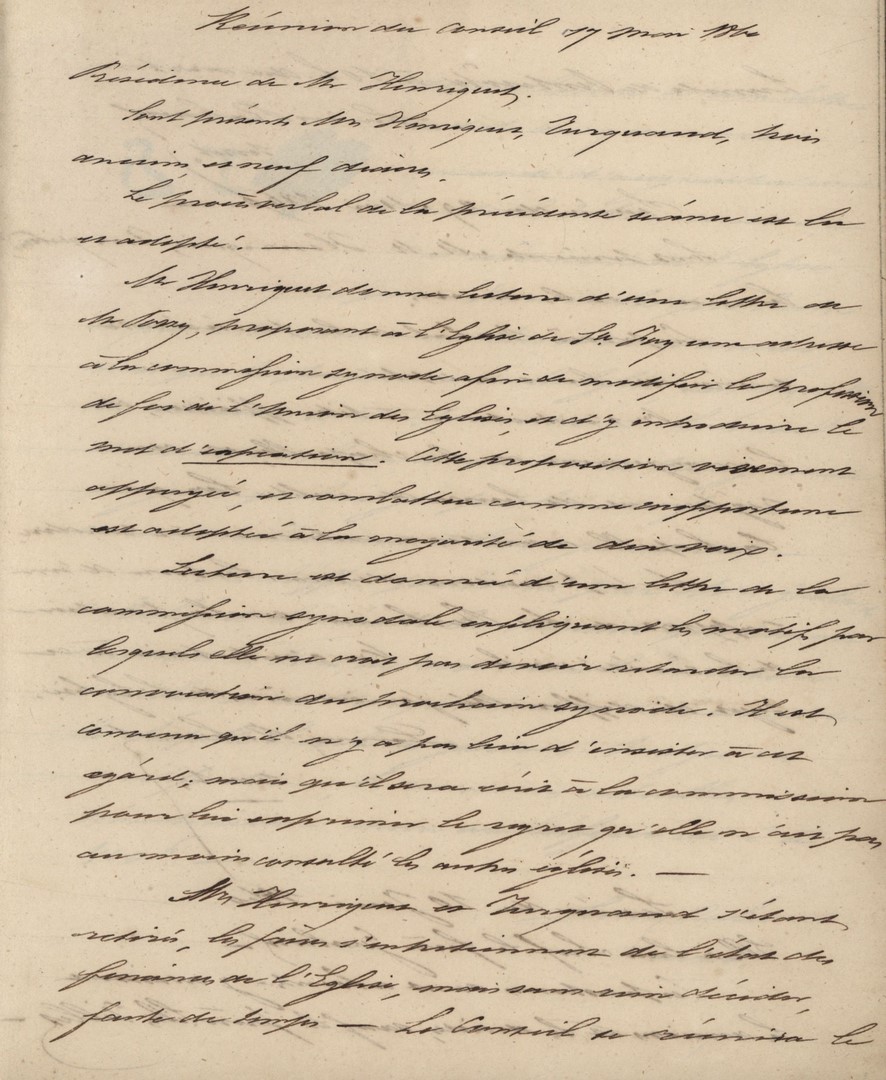 Réunion du conseil 17 mai 186
Présidence de Mr Henriquet.
Sont présents Mrs Henriquet, Turquand, trois
anciens et neuf diacres.
Le procès verbal de la précédente séance est lu
et adopté. —
Mr Henriquet donne lecture d'une lettre de
Mr, proposant à l'Eglise de Ste Foy une adresse
à la commission synode afin de modifier la profession
de foi de l'Union des Eglises, et d'y introduire le
mot d'expiation. Cette proposition vivement
appuyée, et combattue comme inopportune
est adoptée à la majorité de dix voix.
Lecture est donnée d'une lettre de la
commission synodale expliquant les motifs par
lesquels elle ne croit pas devoir retarder la
convocation du prochain synode. Il est
convenu qu'il n'y a pas lieu d'insister à cet
égard; mais qu'il sera écrit à la commission
pour lui exprimer le regret qu'elle n'ait pas
au moins consulté les autres églises. —
Mrs Henriquet et Turquand s'étant
retirés, les frères s'entretiennent de l'état des
finances de l'Eglise, mais sans rien décider,
faute de temps — Le Conseil se réunira le